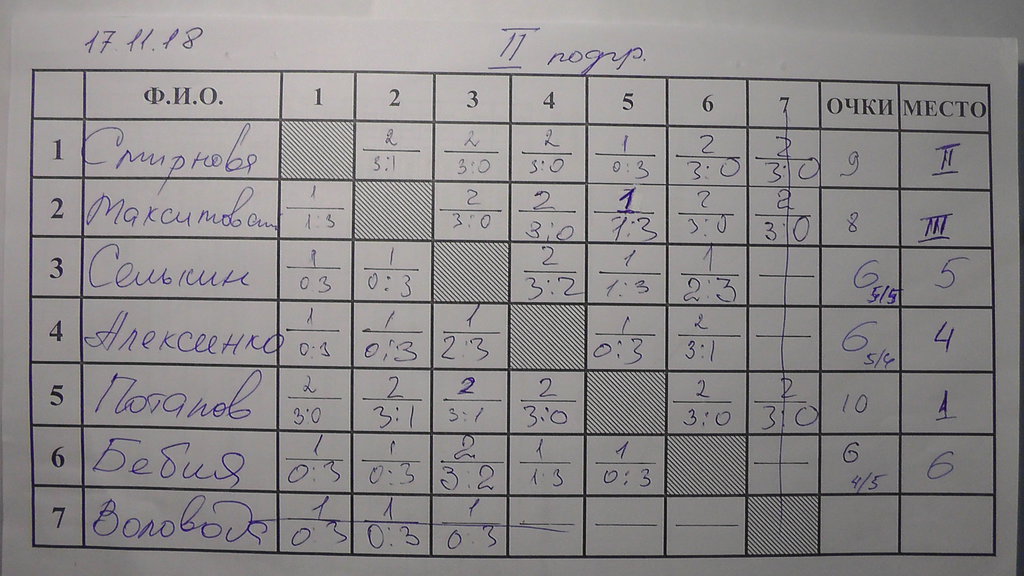 17.11.18 II подгр.
Ф.И.О. 1 2 3 4 5 6 7 ОЧКИ МЕСТО
1 Смирновя 2 3:1 2 3:0 2 3:0 1 0:3 2 3:0 2 3:0 9 II
2 1 1:3 2 3:0 2 3:0 1 1:3 2 3:0 2 3:0 8 III
3 Селькин 1 0:3 1 0:3 2 3:2 1 1:3 1 2:3 — 6 5/5 5
4 Алексинко 1 0:3 1 0:3 1 2:3 1 0:3 2 3:1 — 6 5/4 4
5 Потапов 2 3:0 2 3:1 2 3:1 2 3:0 2 3:0 2 3:0 10 1
6 Бебия 1 0:3 1 0:3 2 3:2 1 1:3 1 0:3 — 6 4/5 6
7 1 0:3 1 0:3 1 0:3 — — —